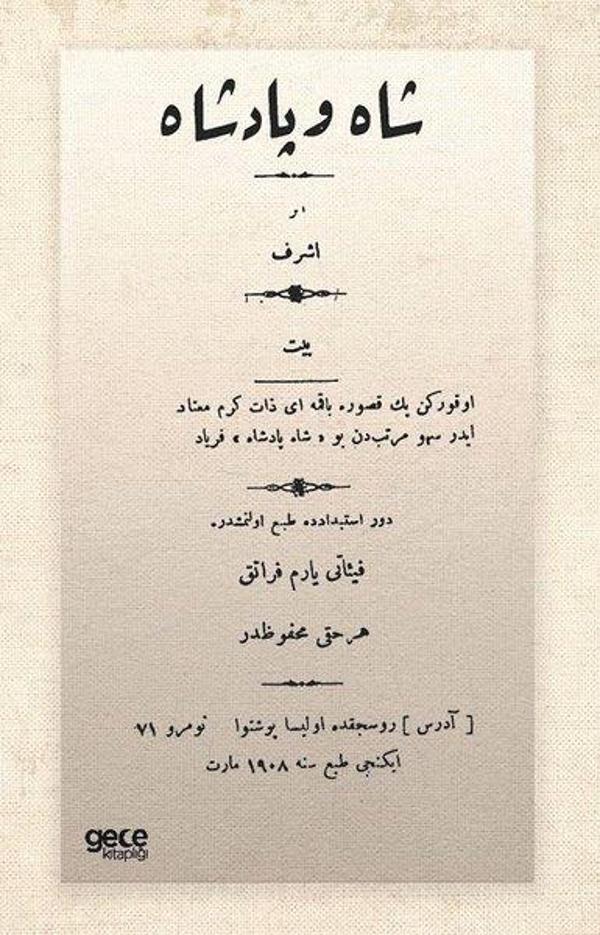 شاه و پادشاه
اثر
اشرف
بيت
اوقوركن پك قصوره باقمه ای ذات كرم معتاد
ايدر سهو مرتبدن بو « شاه پادشاه » فرياد
دور استبدادده طبع اولنمشدر.
فيئاتی يارم فرانق
هر حقی محفوظدر
[ آدرس ] روسجقده اوليسا پوشتوا نومرو ٧١
ايكنجی طبع سنه ١٩٠٨ مارت
gece
kitaplığı